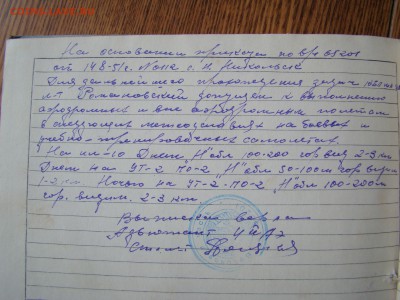 На основании приказа по вр 52018
от 14.8-51г. №0112 с. н. Никольск
Для дальнейшего прохождения задач
лт. Романовский допущен к выполнению
аэродромных и вне аэродромных полетов
в следующих метеоусловиях на боевых и
учебно-тренировочных самолетах.
На ил-10 Днем "Н" обл 100-200 гор. вид 2-3 км
Днем на УТ-2 ПО-2 "Н" обл 50-100м гор. видим.
1-2 км. Ночью на УТ-2-ПО-2 "Н" обл 100-200м
гор. видим. 2-3 км
Выписка верна
Адъютант